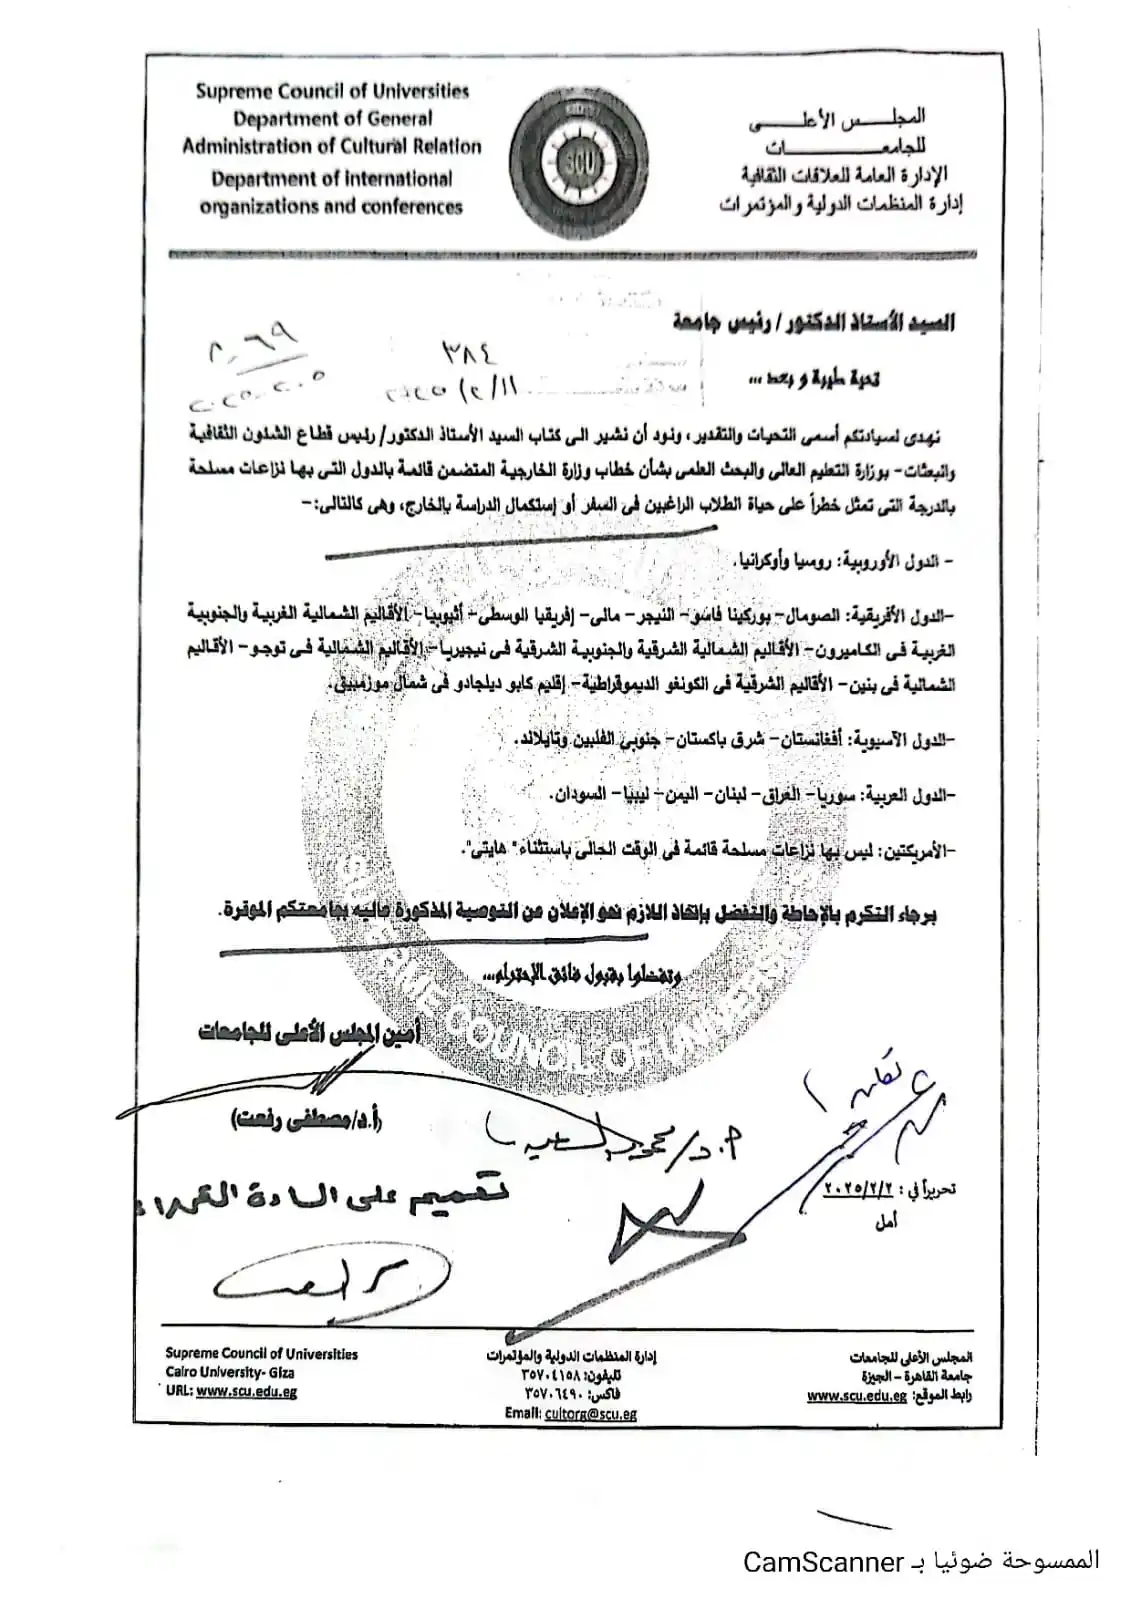 Supreme Council of Universities
Department of General
Administration of Cultural Relation
Department of international
organizations and conferences
SCU
المجلس الأعلى
للجامعات
الإدارة العامة للعلاقات الثقافية
إدارة المنظمات الدولية والمؤتمرات
السيد الأستاذ الدكتور / رئيس جامعة
٣٨٤
تحية طيبة و بعد ...
نهدى لسيادتكم أسمى التحيات والتقدير، ونود أن نشير الى كتاب السيد الأستاذ الدكتور/ رئيس قطاع الشئون الثقافية
والبعثات- بوزارة التعليم العالى والبحث العلمى بشأن خطاب وزارة الخارجية المتضمن قائمة بالدول التى بها نزاعات مسلحة
بالدرجة التى تمثل خطراً على حياة الطلاب الراغبين فى السفر أو إستكمال الدراسة بالخارج، وهى كالتالى:-
- الدول الأوروبية: روسيا وأوكرانيا.
-الدول الأفريقية: الصومال- بوركينا فاسو- النيجر- مالى- إفريقيا الوسطى- أثيوبيا- الأقاليم الشمالية الغربية والجنوبية
الغربية فى الكاميرون- الأقاليم الشمالية الشرقية والجنوبية الشرقية فى نيجيريا- الأقاليم الشمالية فى توجو- الأقاليم
الشمالية فى بنين- الأقاليم الشرقية فى الكونغو الديموقراطية- إقليم كابو ديلجادو فى شمال موزمبيق.
-الدول الآسيوية: أفغانستان- شرق باكستان- جنوبى الفلبين وتايلاند.
-الدول العربية: سوريا- العراق- لبنان- اليمن- ليبيا- السودان.
-الأمريكتين: ليس بها نزاعات مسلحة قائمة فى الوقت الحالى باستثناء" هايتى".
برجاء التكرم بالإحاطة والتفضل بإتخاذ اللازم نحو الإعلان عن التوصية المذكورة عاليه بجامعتكم الموقرة.
وتفضلوا بقبول فائق الإحترام...
أمين المجلس الأعلى للجامعات
(أ.د/مصطفى رفعت)
تحريراً في : ٢٠٢٥/٢/٢
أمل
تعميم على السادة
Supreme Council of Universities
Cairo University- Giza
URL: www.scu.edu.eg
إدارة المنظمات الدولية والمؤتمرات
تليفون: ٣٥٧٠٤١٥٨
فاكس: ٣٥٧٠٦٤٩٠
Email: cultorg@scu.eg
المجلس الأعلى للجامعات
جامعة القاهرة – الجيزة
رابط الموقع: www.scu.edu.eg
الممسوحة ضوئيا بـ CamScanner